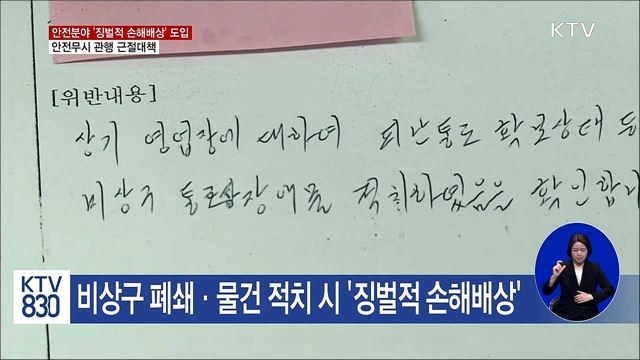 안전분야 '징벌적 손해배상' 도입
안전무시 관행 근절대책
KTV
[위반내용]
상기 영업장에 대하여 피난통로 확보상태 등
비상구 통로상 장애물 적치하였음을 확인합니
KTV
830
비상구 폐쇄·물건 적치 시 '징벌적 손해배상'